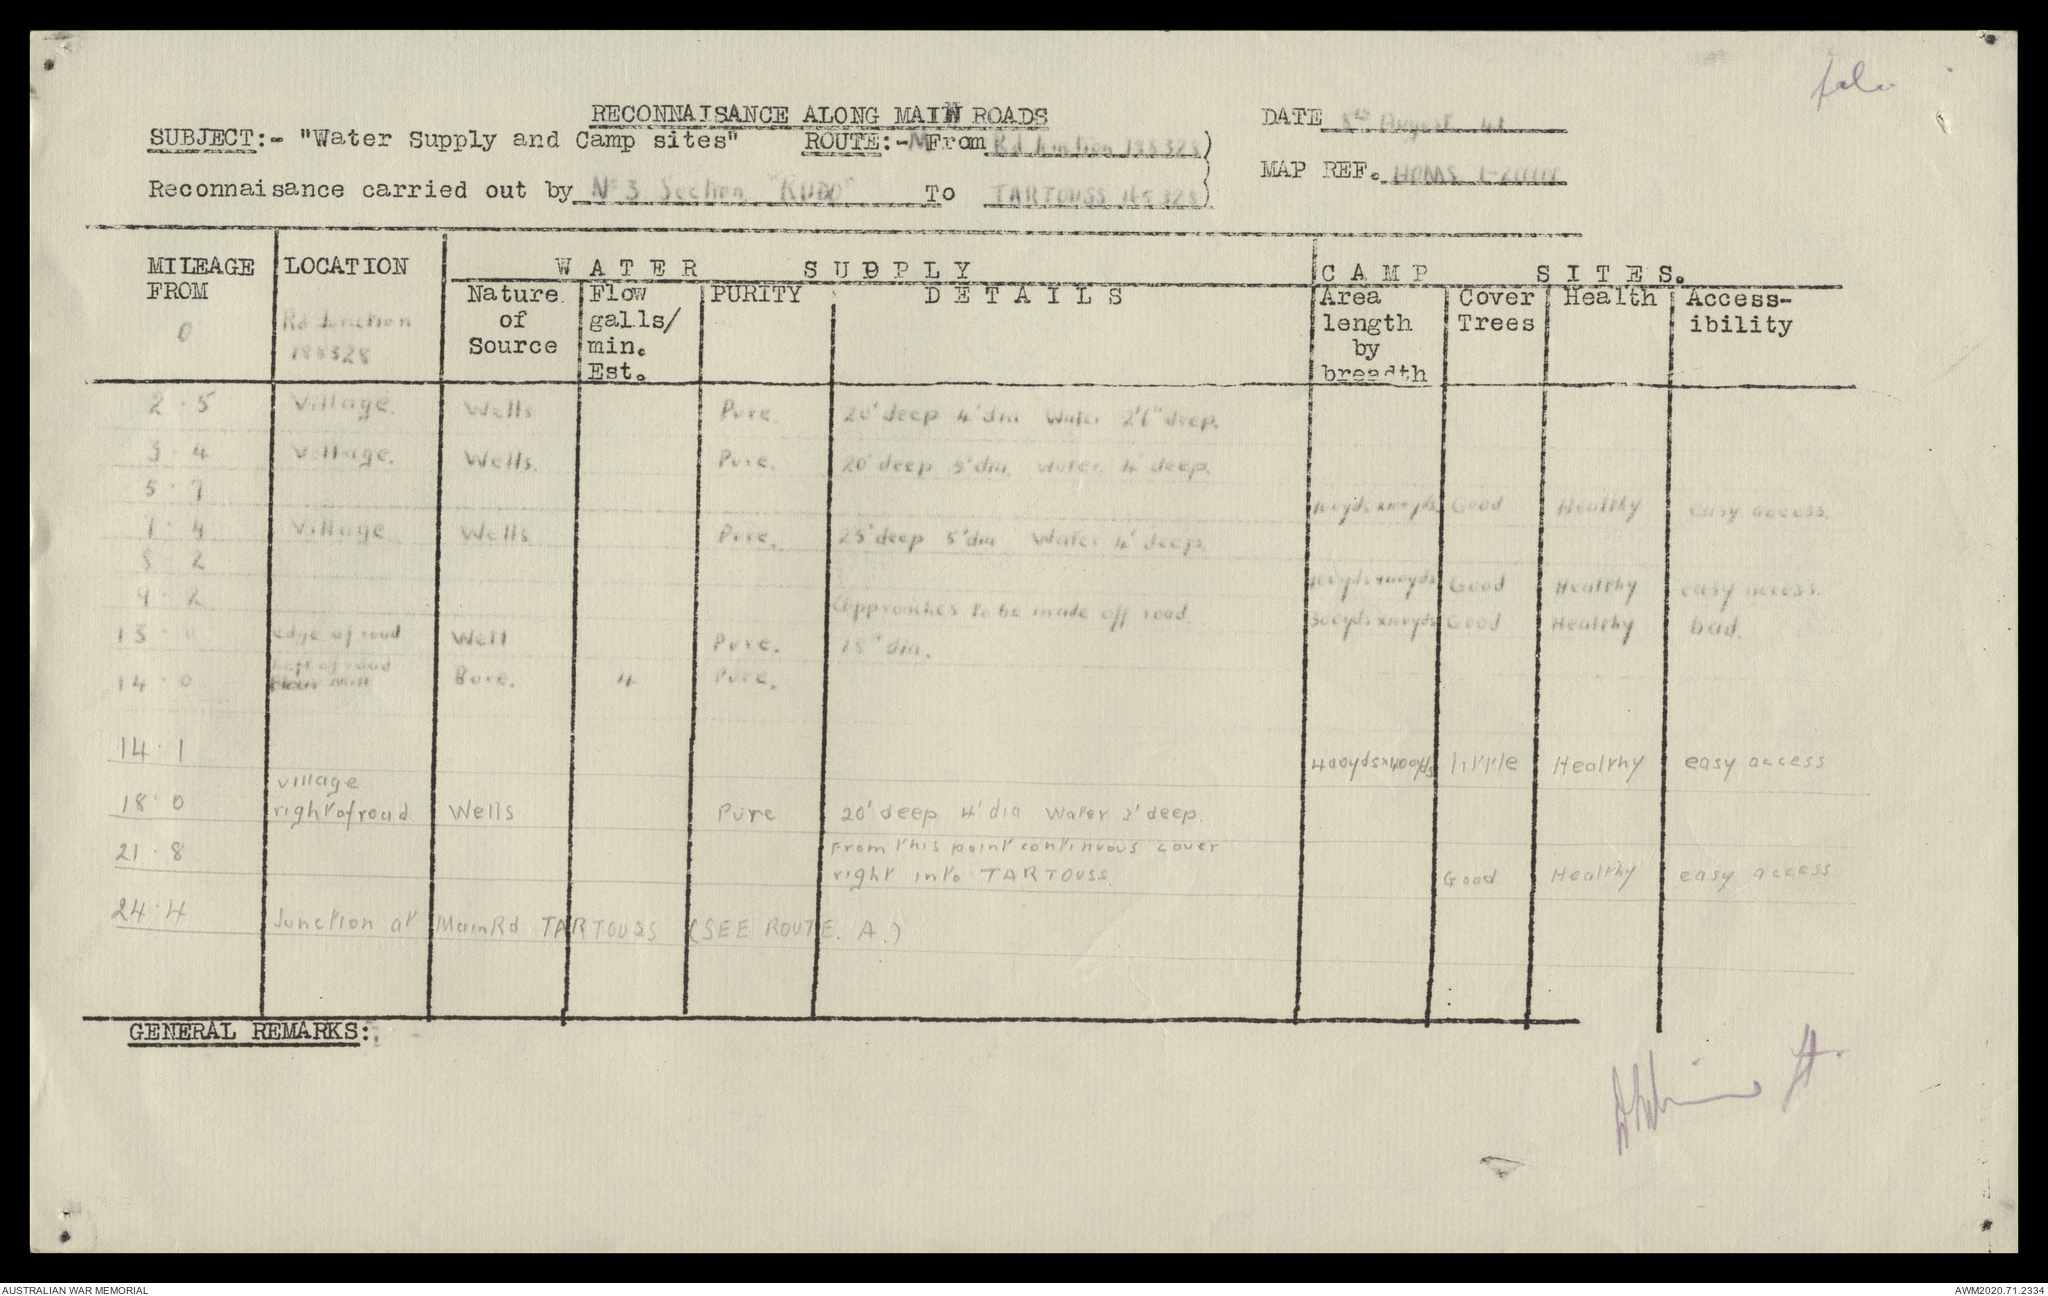 RECONNAISANCE ALONG MAIN ROADS
DATE 8th August 41
SUBJECT:- "Water Supply and Camp sites" ROUTE:-M From Rd Junction 188328)
MAP REF. HOMS
Reconnaisance carried out by No 3 Section "RUDO" To TARTOUSS 45328)
MILEAGE FROM LOCATION WATER SUPPLY CAMP SITES.
Nature of Source Flow galls/ min. Est. PURITY DETAILS Area length by breadth Cover Trees Health Access- ibility
0 Rd Junction 188328
2.5 Village. Wells Pure 20' deep 4' dia Water 2'6" deep.
3.4 Village. Wells. Pure. 20' deep 5' dia. Water 4' deep.
5.7 Good Healthy easy access.
7.4 Village Wells Pure. 25' deep 5' dia Water 4' deep
8.2 Good Healthy easy access.
9.2 Approaches to be made off road. Good Healthy bad.
13.0 edge of road Well Pure. 18" dia.
14.0 Left of road Flour Mill Bore. 4 Pure.
14.1 400ydsx400yds little Healthy easy access
18.0 village right of road Wells Pure 20' deep 4' dia Water 3' deep.
21.8 From this point continuous cover right into TARTOUSS Good Healthy easy access
24.4 Junction at Main Rd TARTOUSS (SEE ROUTE. A.)
GENERAL REMARKS:
AUSTRALIAN WAR MEMORIAL
AWM2020.71.2334